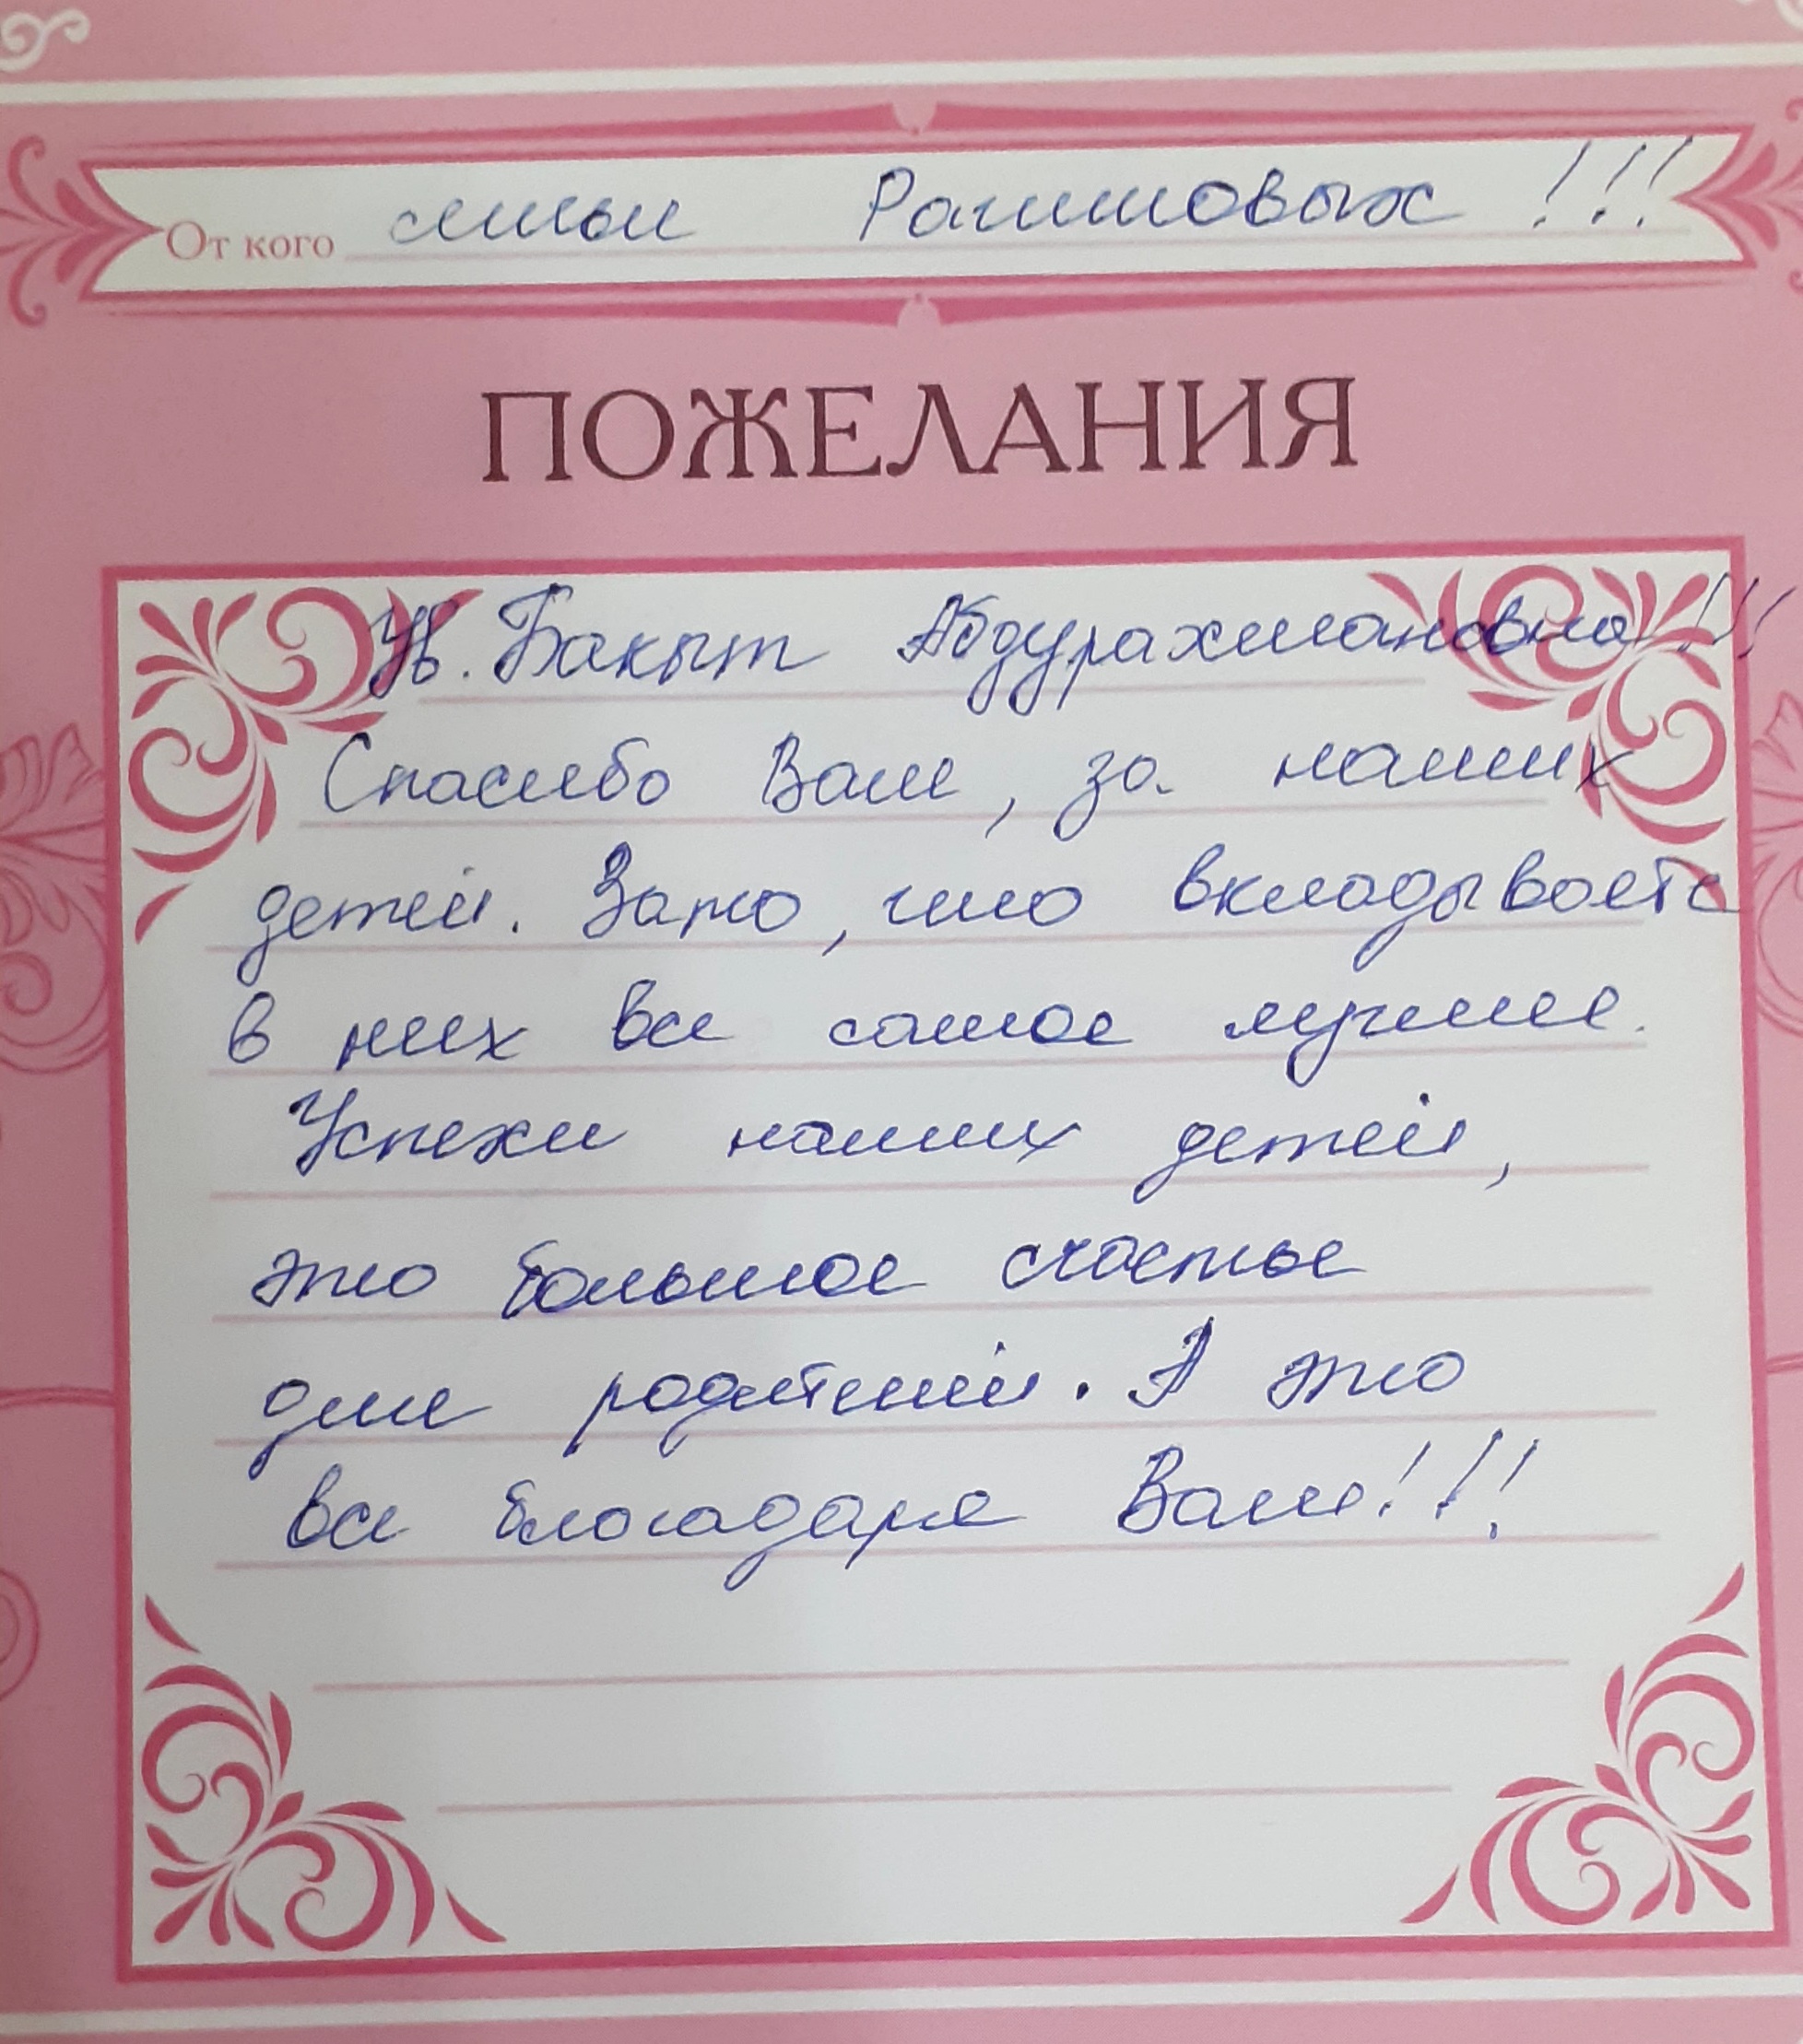 От кого семьи Рагимовых !!!
ПОЖЕЛАНИЯ
Ув. Бакыт Абдурахмановна !!!
Спасибо Вам, за наших
детей. Зато, что вкладываете
в них все самое лучшее.
Успехи наших детей,
это большое счастье
для родителей. А это
все благодаря Вам!!!